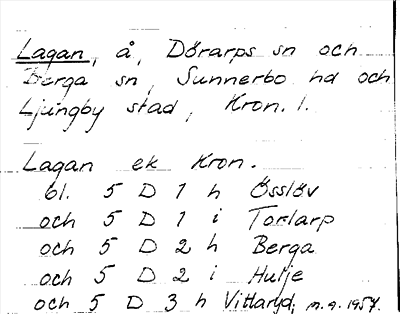 Lagan, å, Dörarps sn och
Berga sn, Sunnerbo hd och
Ljungby stad, Kron. l.
Lagan ek Kron.
bl. 5 D 1 h Össlöv
och 5 D 1 i Torlarp
och 5 D 2 h Berga
och 5 D 2 i Hutje
och 5 D 3 h Vittaryd, m.a. 1957.